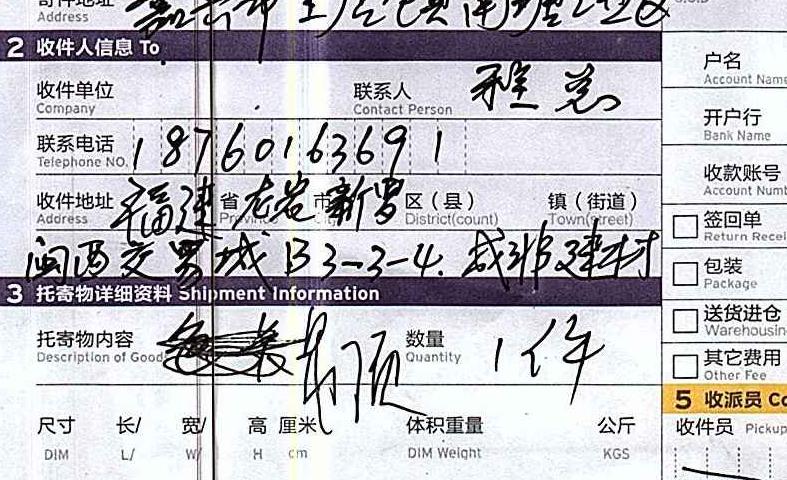 寄件地址
Address
2 收件人信息 To
收件单位
Company
联系人
Contact Person
总
联系电话
Telephone NO.
18760163691
收件地址
Address
福建 省 龙岩 市 新罗 区（县） 镇（街道）
Province City District(count) Town(street)
闽西交易城B3-3-4. 成非建材
3 托寄物详细资料 Shipment Information
托寄物内容
Description of Goods
吊顶
数量
Quantity
1件
尺寸 长/ 宽/ 高 厘米 体积重量 公斤
DIM L/ W/ H cm DIM Weight KGS
户名
Account Name
开户行
Bank Name
收款账号
Account Numb
签回单
Return Recei
包装
Package
送货进仓
Warehousin
其它费用
Other Fee
5 收派员 Co
收件员 Pickup